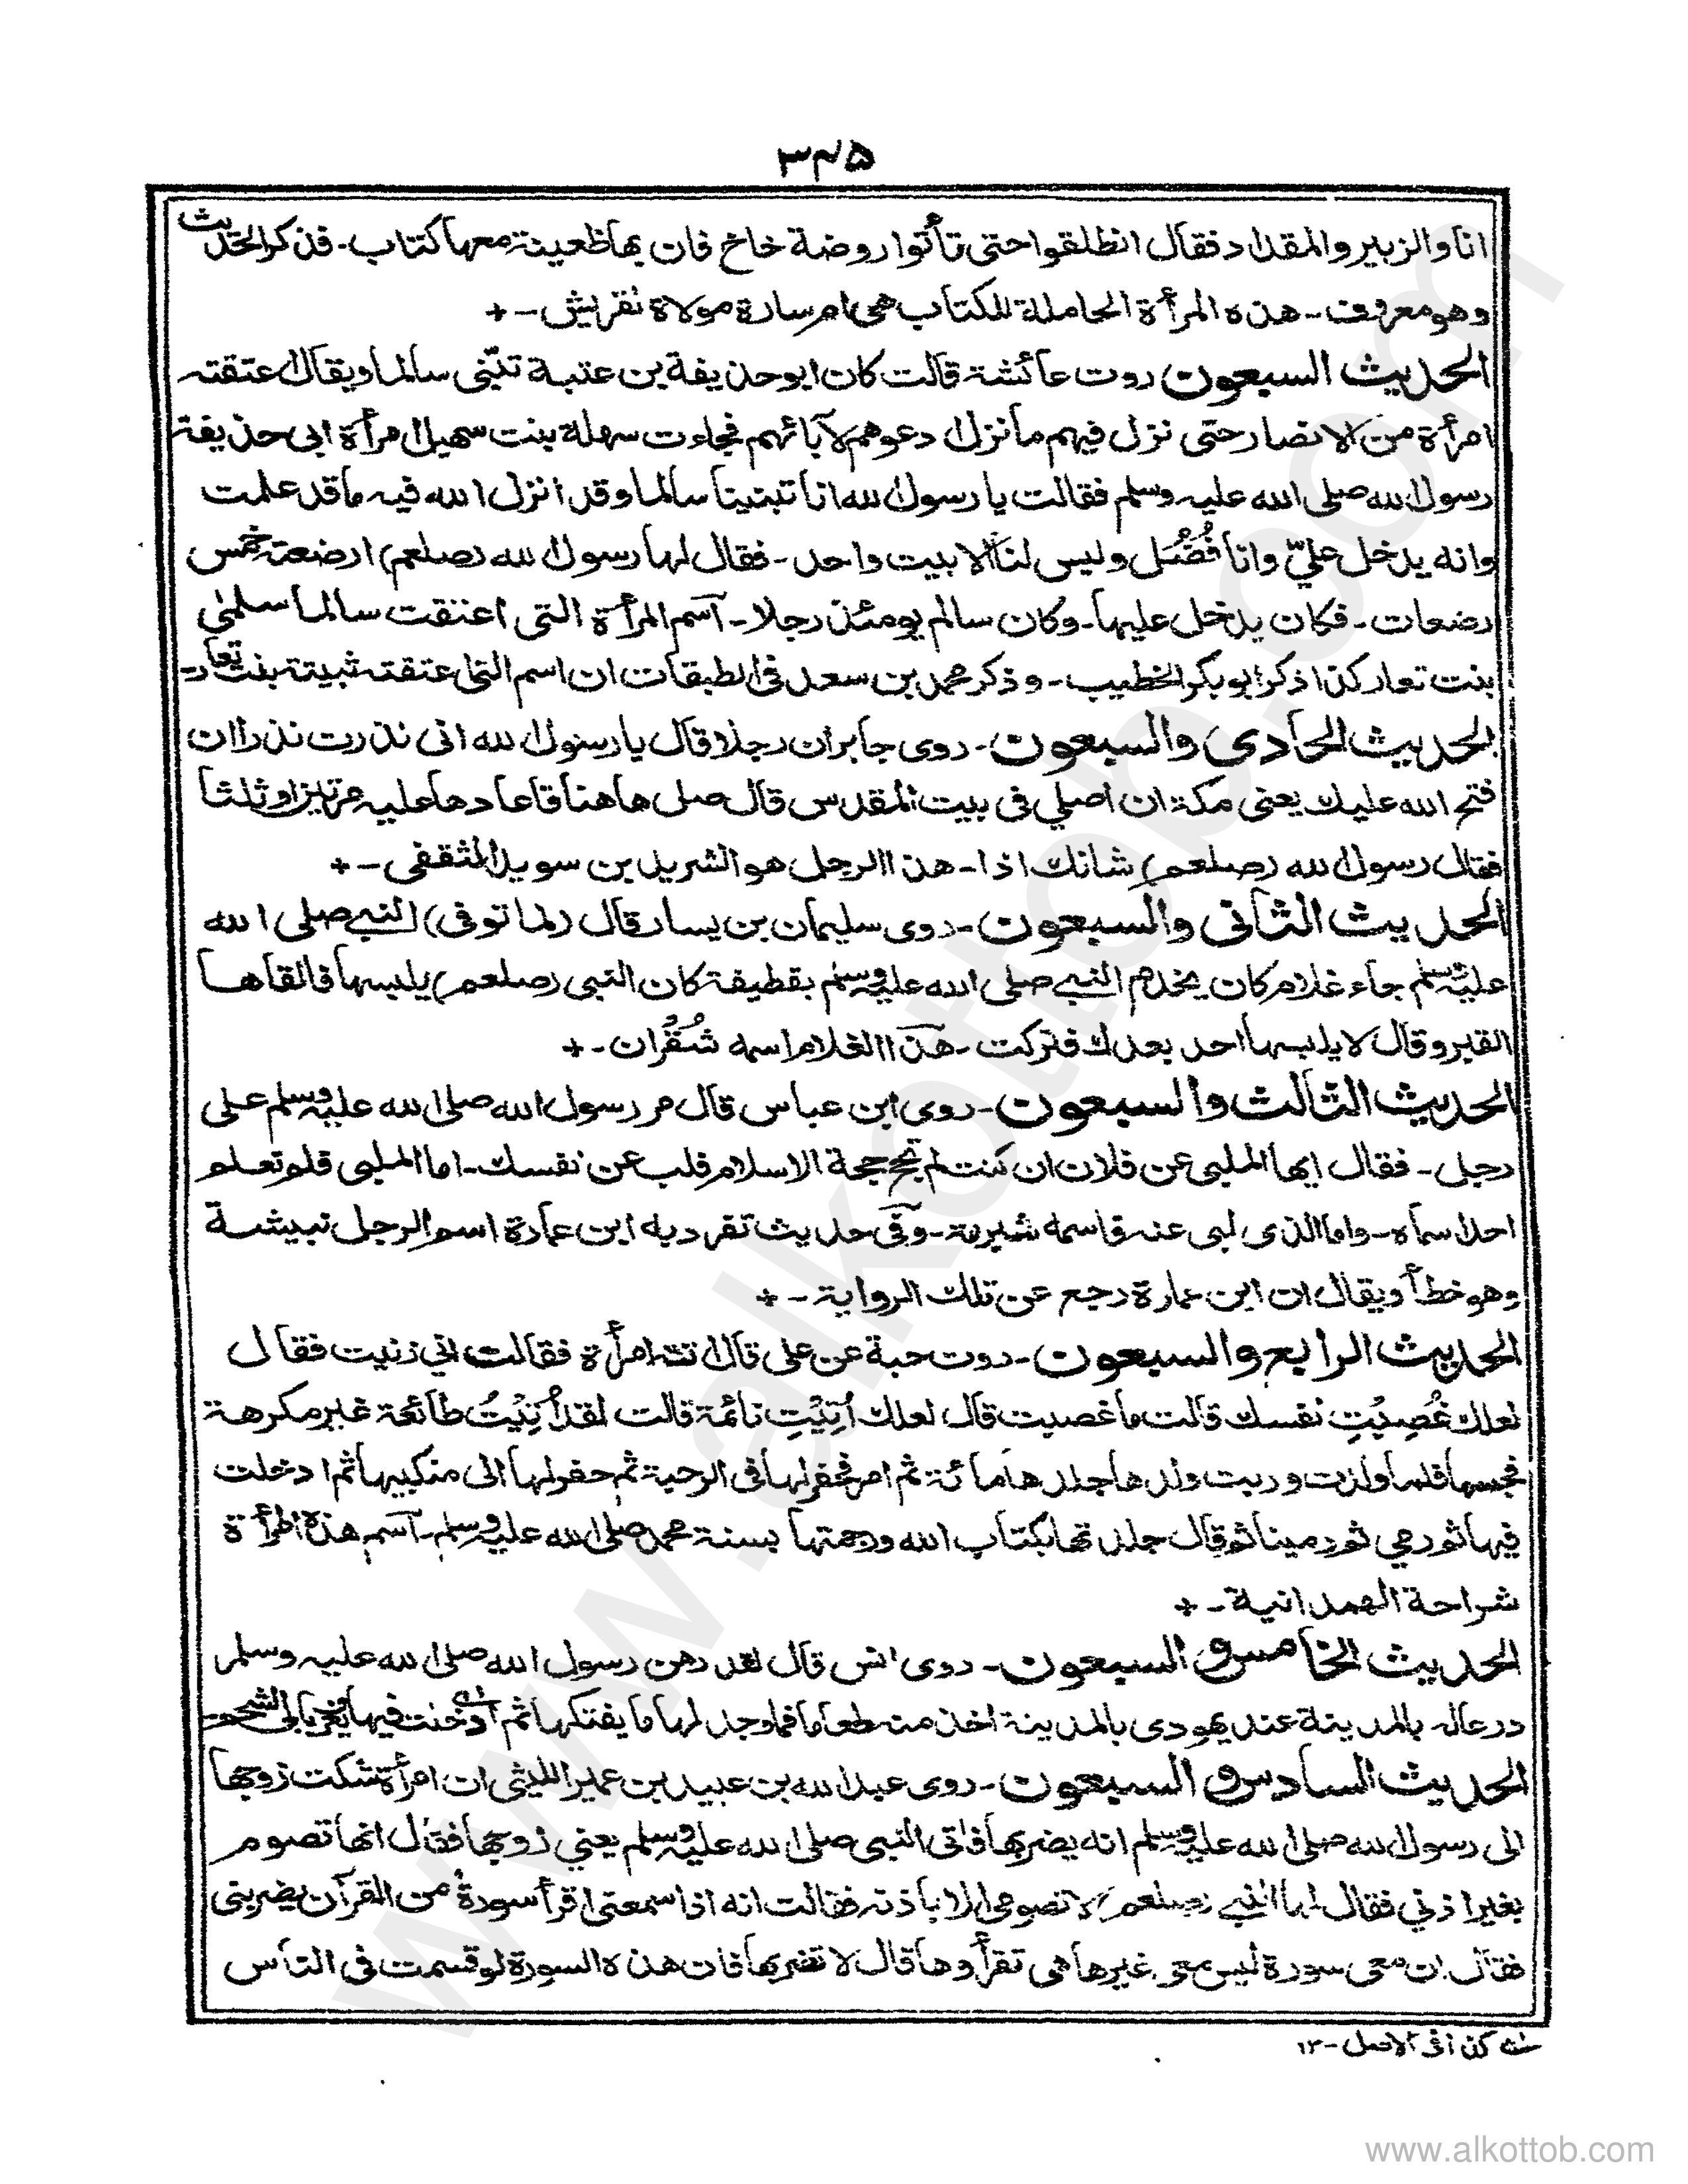 ٣٤٥
انا والزبير والمقداد فقال انطلقوا حتى تأتوا روضة خاخ فان بها ظعينة معها كتاب ـ فذكر الحديث
وهو معروف ـ هذه المرأة الحاملة للكتاب هى ام سارة مولاة لقريش ـ +
الحديث السبعون روت عائشة قالت كان ابو حذيفة بن عتبة تبنّى سالما ويقال اعتقته
امرأة من الانصار حتى نزل فيهم ما نزل ادعوهم لآبائهم فجاءت سهلة بنت سهيل امرأة ابى حذيفة
رسول الله صلى الله عليه وسلم فقالت يا رسول الله انا تبنينا سالما وقد انزل الله فيه ما قد علمت
وانه يدخل علىّ وانا فُضُل وليس لنا الا بيت واحد ـ فقال لها رسول الله (صلعم) ارضعته خمس
رضعات ـ فكان يدخل عليها ـ وكان سالم يومئذ رجلا ـ آسم المرأة التى اعتقت سالما سلمى
بنت تعار كذا ذكر ابو بكر الخطيب ـ وذكر محمد بن سعد فى الطبقات ان اسم التى اعتقته ثبيتة بنت تعار ـ
الحديث الحادى والسبعون ـ روى جابر ان رجلا قال يا رسول الله انى نذرت نذرا ان
فتح الله عليك يعنى مكة ان اصلي فى بيت المقدس قال صل هاهنا فاعادها عليه مرتين او ثلثا
فقال رسول الله (صلعم) شانك اذا ـ هذا الرجل هو الشريد بن سويد الثقفى ـ +
الحديث الثانى والسبعون ـ روى سليمان بن يسار قال (لما توفى) النبى صلى الله
عليه وسلم جاء غلام كان يخدم النبى صلى الله عليه وسلم بقطيفة كان النبى (صلعم) يلبسها فالقاها
القبر وقال لا يلبسها احد بعدك فتركت ـ هذا الغلام اسمه شُقْران ـ +
الحديث الثالث والسبعون ـ روى ابن عباس قال مر رسول الله صلى الله عليه وسلم على
رجل ـ فقال ايها الملبى عن فلان ان كنت لم تحج حجة الاسلام فلب عن نفسك ـ اما الملبى فلم تعلم
احدا سماه ـ واما الذى لبى عنه فاسمه شبرمة ـ وفى حديث تفرد به ابن عمارة اسم الرجل نبيشة
وهو خطأ ويقال ان ابن عمارة رجع عن تلك الرواية ـ +
الحديث الرابع والسبعون ـ روت حبة عن على قال اتته امرأة فقالت انى زنيت فقال
لعلك غُصِبْتِ نفسك قالت ما غصبت قال لعلك اُتِيْتِ نائمة قالت لقد اُتِيْتُ طائعة غير مكرهة
فحبسها فلما ولدت وربت ولدها جلدها مائة ثم امر فحفر لها فى الرحبة ثم حفر لها الى منكبيها ثم ادخلت
فيها ثم رمى ثم رمينا ثم قال جلدتها بكتاب الله ورجمتها بسنة محمد صلى الله عليه وسلم ـ آسم هذه المرأة
شراحة الهمدانية ـ +
الحديث الخامس والسبعون ـ روى انس قال لقد رهن رسول الله صلى الله عليه وسلم
درعا له بالمدينة عند يهودى بالمدينة اخذ منه طعاما فما وجد لها ما يفتكها ثم ادخنت فيها الى الشحم ـ
الحديث السادس والسبعون ـ روى عبد الله بن عبيد بن عمير الليثى ان امرأة شكت زوجها
الى رسول الله صلى الله عليه وسلم انه يضربها فاتى النبى صلى الله عليه وسلم يعني زوجها فقال انها تصوم
بغير اذني فقال لها النبى (صلعم) لا تصومى الا باذنه فقالت انه اذا سمعنى اقرأ سورة من القرآن يضربنى
فقال ان معى سورة ليس معى غيرها هى تقرأوها قال لا تضربها فان هذه السورة لو قسمت فى الناس
كذا فى الاصل ـ ١٢
www.alkottob.com